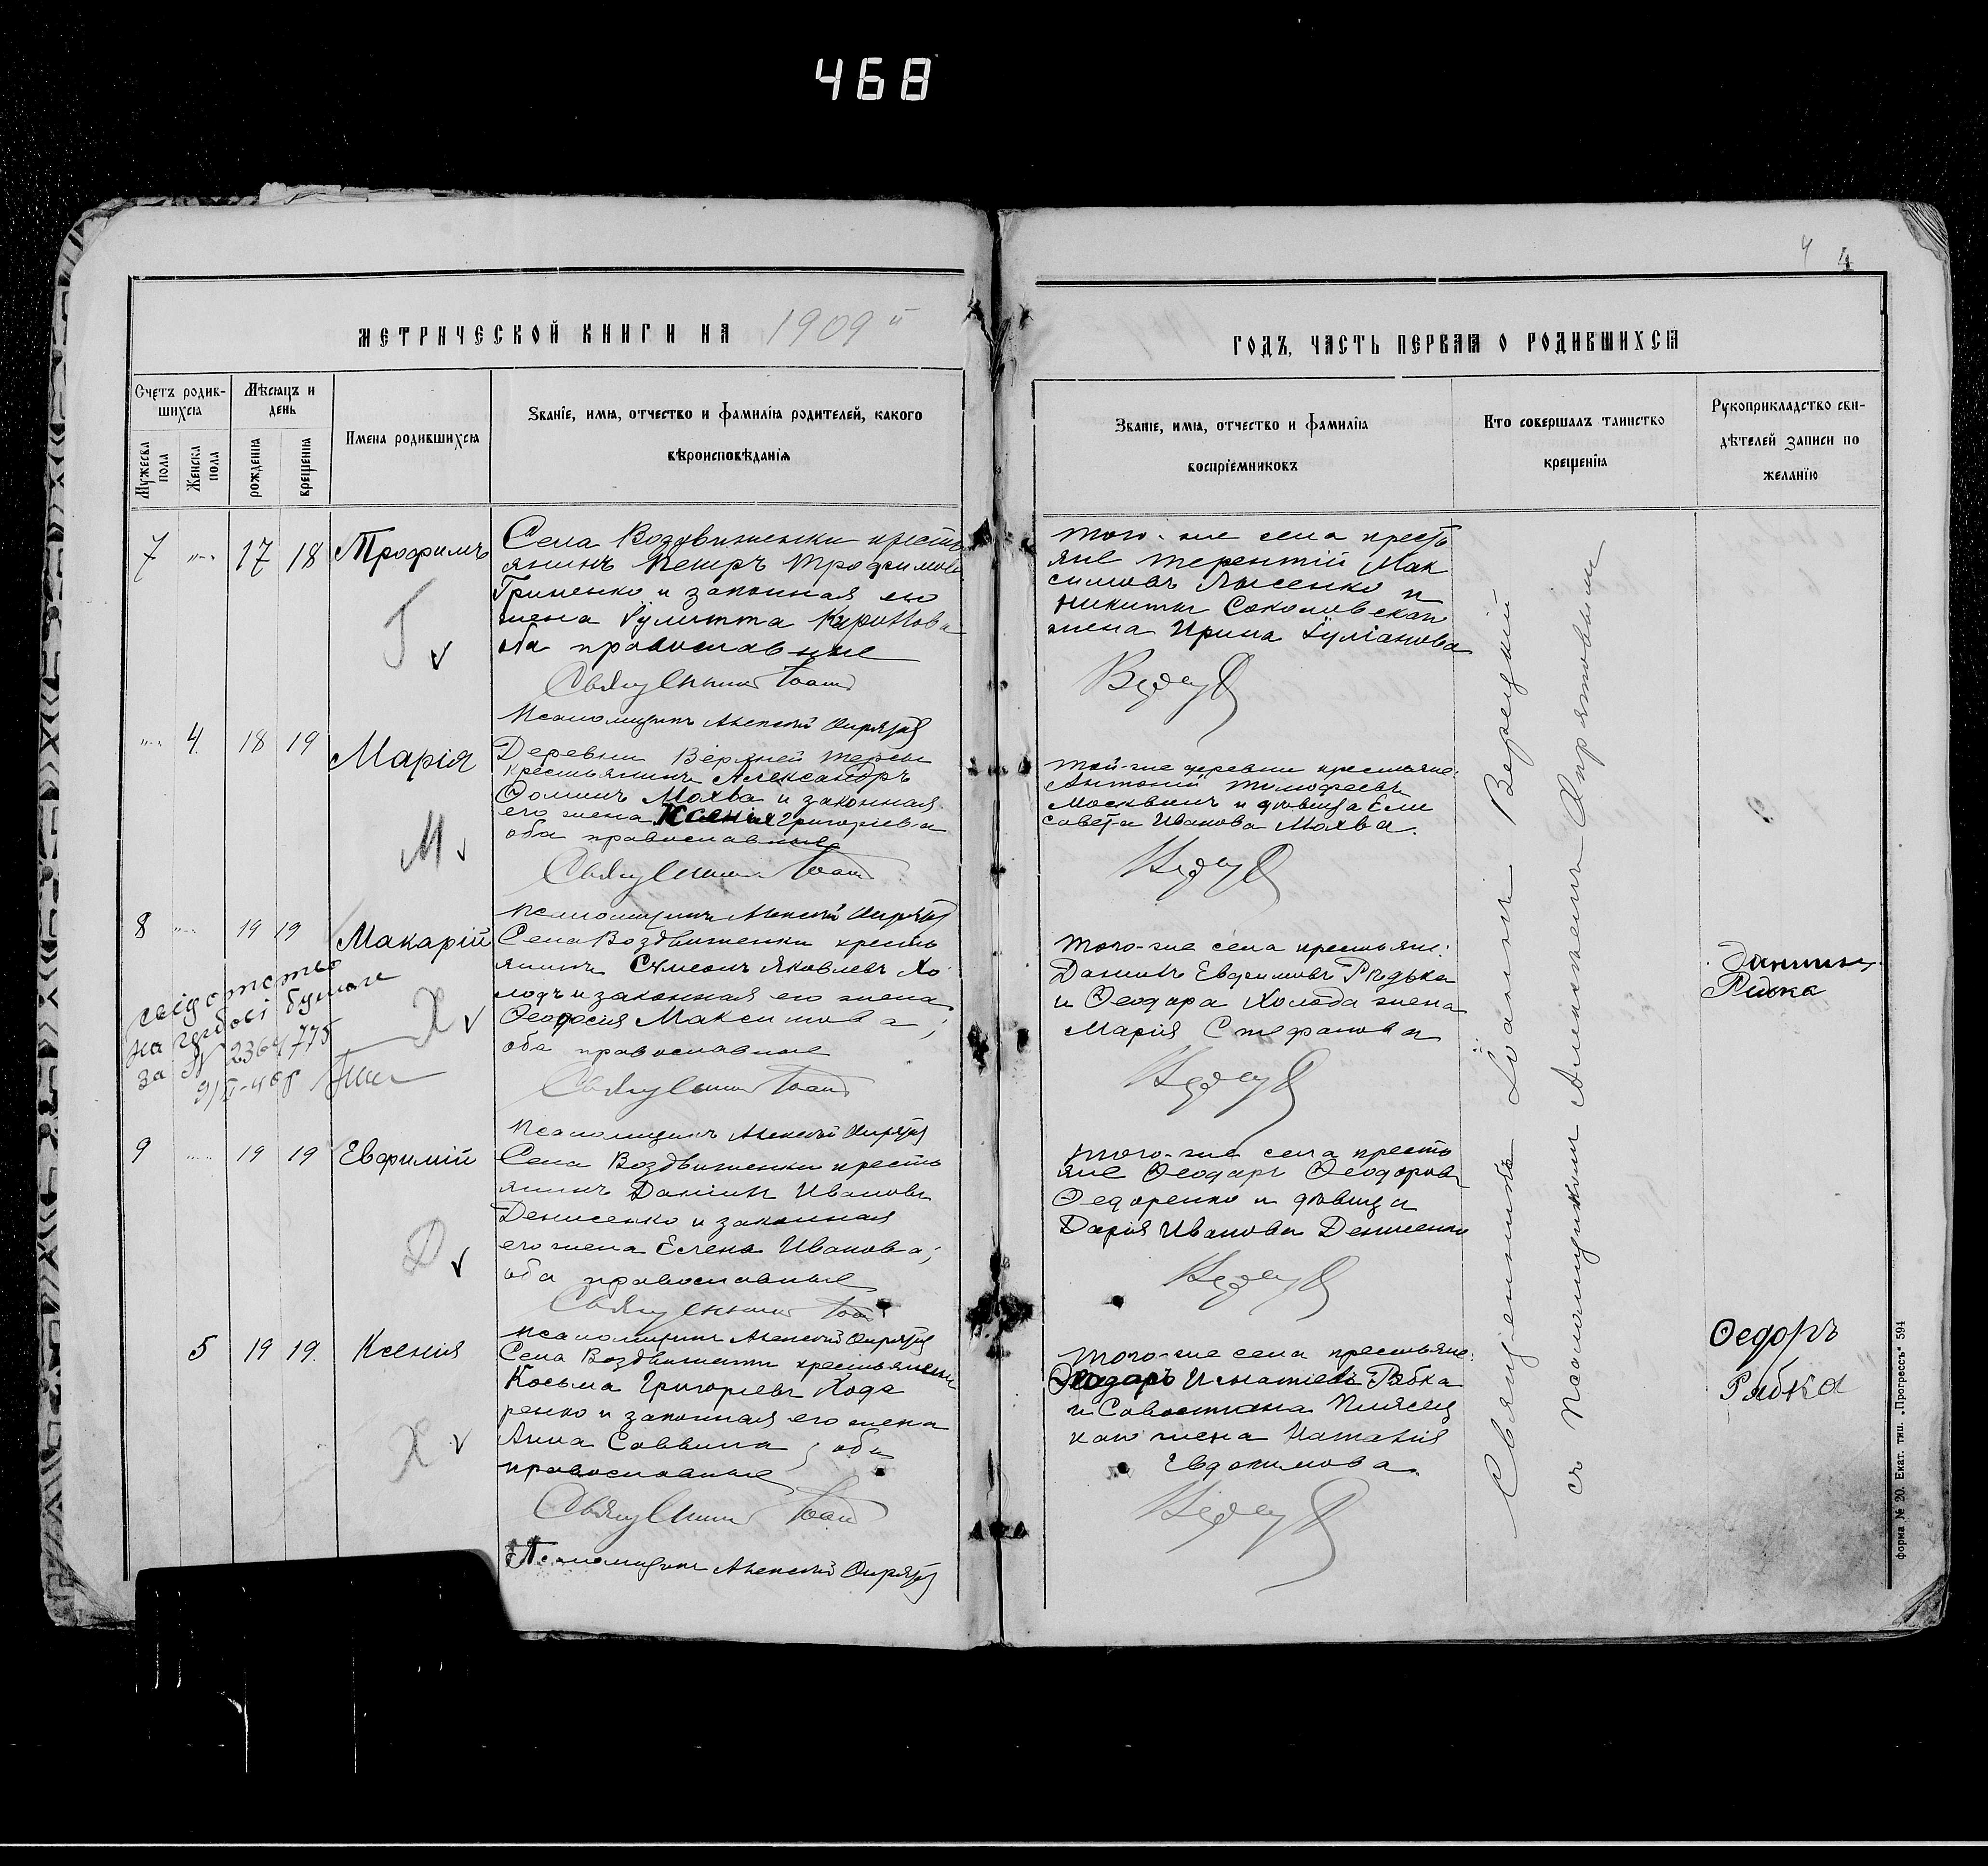 468
4
4
МЕТРИЧЕСКОЙ КНИГИ НА 1909 й
ГОДЪ, ЧАСТЬ ПЕРВАЯ О РОДИВШИХСЯ
Счетъ родив-
шихся
Мужеска
пола
Женска
пола
Мѣсяцъ и
день
рожденія
крещенія
Имена родившихся
Званіе, имя, отчество и фамилія родителей, какого
вѣроисповѣданія
Званіе, имя, отчество и фамилія
воспріемниковъ
Кто совершалъ таинство
крещенія
Рукоприкладство сви-
дѣтелей записи по
желанію
7 "-" 17 18 Трофимъ
Г
Села Воздвиженки кресть
янинъ Петръ Трофимовъ
Гриненко и законная его
жена Іулитта Кириллова
оба православные
Священникъ Іоаннъ
Псаломщикъ Алексѣй Опрятовъ
того-же села кресть
яне Терентій Мак
симовъ Лысенко и
Никиты Соколовскаго
жена Ирина Іуліанова
"-" 4. 18 19 Марія
М
Деревни Верхней Терсы
крестьянинъ Александръ
Ѳоминъ Мохва и законная
его жена Ксенія Григоріева
оба православные
Священникъ Іоаннъ
Псаломщикъ Алексѣй Опрятовъ
той-же деревни крестьяне:
Антоній Тимофеевъ
Москвинъ и дѣвица Ели
совета Иванова Мохва.
8 "-" 19 19 Макарій
Х
свідотство
на гербові бумаги
за № 2364775
Села Воздвиженки кресть
янинъ Сѵмеонъ Яковлевъ Хо
лодъ и законная его жена
Ѳеодосія Максимова;
оба православные
Священникъ Іоаннъ
Псаломщикъ Алексѣй Опрятовъ
того-же села крестьяне:
Даніилъ Евфимовъ Рѣдька
и Ѳеодора Холода жена
Марія Стефанова
Данило
Рідька
9 "-" 19 19 Евфимій
Д
Села Воздвиженки кресть
янинъ Даніилъ Ивановъ
Денисенко и законная
его жена Елена Иванова;
оба православные
Священникъ Іоаннъ
Псаломщикъ Алексѣй Опрятовъ
того-же села кресть
яне Ѳеодоръ Ѳеодоровъ
Ѳедоренко и дѣвица
Дарія Иванова Денисенко
5 19 19. Ксенія
Х
Села Воздвиженки крестьянинъ
Косьма Григорьевъ Хода
ренко и законная его жена
Анна Саввина; оба
православные
Священникъ Іоаннъ
Псаломщикъ Алексѣй Опрятовъ
того-же села крестьяне:
Ѳеодоръ Игнатіевъ Рябка
жена Наталія
Евдокимова.
Ѳедоръ
Рябка
Священникъ Іоаннъ Верецкій
съ Псаломщикомъ Алексѣемъ Опрятовымъ
форма № 20. Екат. тип. „Прогрессъ" 594